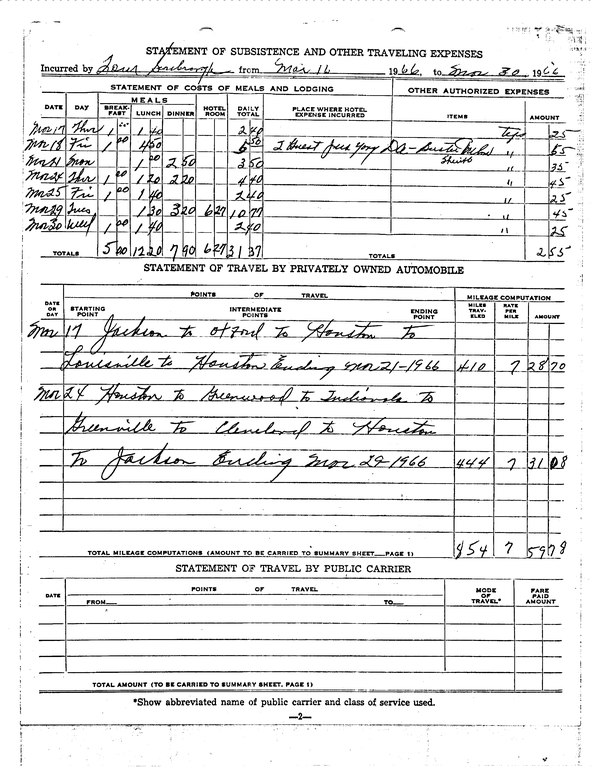 STATEMENT OF SUBSISTENCE AND OTHER TRAVELING EXPENSES
Incurred by from Mar 16 1966, to Mar 30 1966
STATEMENT OF COSTS OF MEALS AND LODGING OTHER AUTHORIZED EXPENSES
DATE DAY MEALS BREAK-FAST LUNCH DINNER HOTEL ROOM DAILY TOTAL PLACE WHERE HOTEL EXPENSE INCURRED ITEMS AMOUNT
Mar 17 Thur 1 00 1 40 2 40 tips 25
Mar 18 Fri 1 00 4 50 5 50 2 Guest " 55
Mar 21 Mon 1 00 2 50 3 50 " 35
Mar 24 Thur 1 00 1 20 2 20 4 40 " 45
Mar 25 Fri 1 00 1 40 2 40 " 25
Mar 29 Tues 1 30 3 20 6 27 10 77 " 45
Mar 30 Wed 1 00 1 40 2 40 " 25
TOTALS 5 00 12 20 7 90 6 27 31 37 TOTALS 2 55
STATEMENT OF TRAVEL BY PRIVATELY OWNED AUTOMOBILE
DATE OR DAY POINTS OF TRAVEL MILEAGE COMPUTATION
STARTING POINT INTERMEDIATE POINTS ENDING POINT MILES TRAV-ELED RATE PER MILE AMOUNT
Mar 17 Jackson to Oxford to Houston to
Louisville to Houston Ending Mar 21-1966 410 7 28 70
Mar 24 Houston to Greenwood to Indianola to
Greenville to Cleveland to Houston
To Jackson Ending Mar 29-1966 444 7 31 08
TOTAL MILEAGE COMPUTATIONS (AMOUNT TO BE CARRIED TO SUMMARY SHEET—PAGE 1) 854 7 59 78
STATEMENT OF TRAVEL BY PUBLIC CARRIER
DATE POINTS OF TRAVEL MODE OF TRAVEL* FARE PAID AMOUNT
FROM TO
TOTAL AMOUNT (TO BE CARRIED TO SUMMARY SHEET, PAGE 1)
*Show abbreviated name of public carrier and class of service used.
—2—